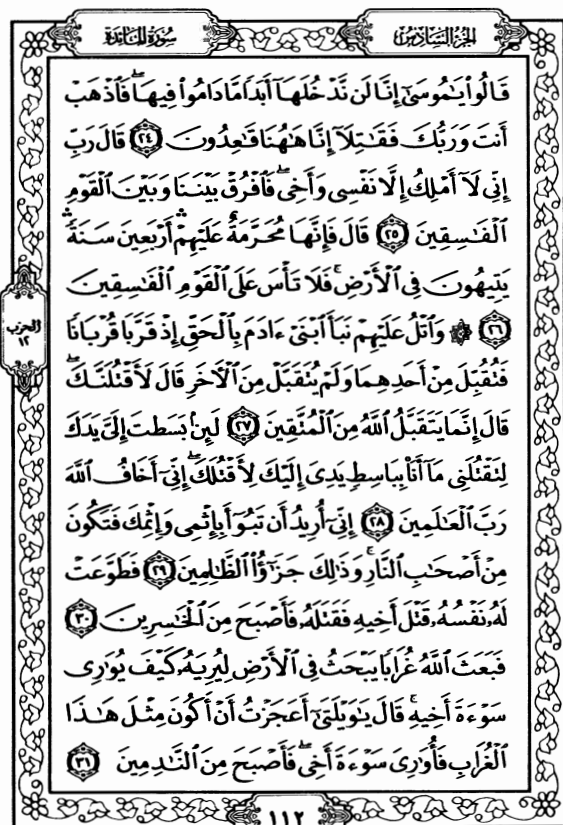 سُورَةُ المَائدة
الجُزءُ السَّادِسُ
قَالُوا۟ يَٰمُوسَىٰٓ إِنَّا لَن نَّدْخُلَهَآ أَبَدًا مَّا دَامُوا۟ فِيهَا ۖ فَٱذْهَبْ
أَنتَ وَرَبُّكَ فَقَٰتِلَآ إِنَّا هَٰهُنَا قَٰعِدُونَ ٢٤ قَالَ رَبِّ
إِنِّى لَآ أَمْلِكُ إِلَّا نَفْسِى وَأَخِى ۖ فَٱفْرُقْ بَيْنَنَا وَبَيْنَ ٱلْقَوْمِ
ٱلْفَٰسِقِينَ ٢٥ قَالَ فَإِنَّهَا مُحَرَّمَةٌ عَلَيْهِمْ ۛ أَرْبَعِينَ سَنَةً ۛ
يَتِيهُونَ فِى ٱلْأَرْضِ ۚ فَلَا تَأْسَ عَلَى ٱلْقَوْمِ ٱلْفَٰسِقِينَ
٢٦ ۞ وَٱتْلُ عَلَيْهِمْ نَبَأَ ٱبْنَىْ ءَادَمَ بِٱلْحَقِّ إِذْ قَرَّبَا قُرْبَانًا
فَتُقُبِّلَ مِنْ أَحَدِهِمَا وَلَمْ يُتَقَبَّلْ مِنَ ٱلْـَٔاخَرِ قَالَ لَأَقْتُلَنَّكَ ۖ
قَالَ إِنَّمَا يَتَقَبَّلُ ٱللَّهُ مِنَ ٱلْمُتَّقِينَ ٢٧ لَئِنۢ بَسَطتَ إِلَىَّ يَدَكَ
لِتَقْتُلَنِى مَآ أَنَا۠ بِبَاسِطٍ يَدِىَ إِلَيْكَ لِأَقْتُلَكَ ۖ إِنِّىٓ أَخَافُ ٱللَّهَ
رَبَّ ٱلْعَٰلَمِينَ ٢٨ إِنِّىٓ أُرِيدُ أَن تَبُوٓأَ بِإِثْمِى وَإِثْمِكَ فَتَكُونَ
مِنْ أَصْحَٰبِ ٱلنَّارِ ۚ وَذَٰلِكَ جَزَٰٓؤُا۟ ٱلظَّٰلِمِينَ ٢٩ فَطَوَّعَتْ
لَهُۥ نَفْسُهُۥ قَتْلَ أَخِيهِ فَقَتَلَهُۥ فَأَصْبَحَ مِنَ ٱلْخَٰسِرِينَ ٣٠
فَبَعَثَ ٱللَّهُ غُرَابًا يَبْحَثُ فِى ٱلْأَرْضِ لِيُرِيَهُۥ كَيْفَ يُوَٰرِى
سَوْءَةَ أَخِيهِ ۚ قَالَ يَٰوَيْلَتَىٰٓ أَعَجَزْتُ أَنْ أَكُونَ مِثْلَ هَٰذَا
ٱلْغُرَابِ فَأُوَٰرِىَ سَوْءَةَ أَخِى ۖ فَأَصْبَحَ مِنَ ٱلنَّٰدِمِينَ ٣١
الحزب
١٢
١١٢